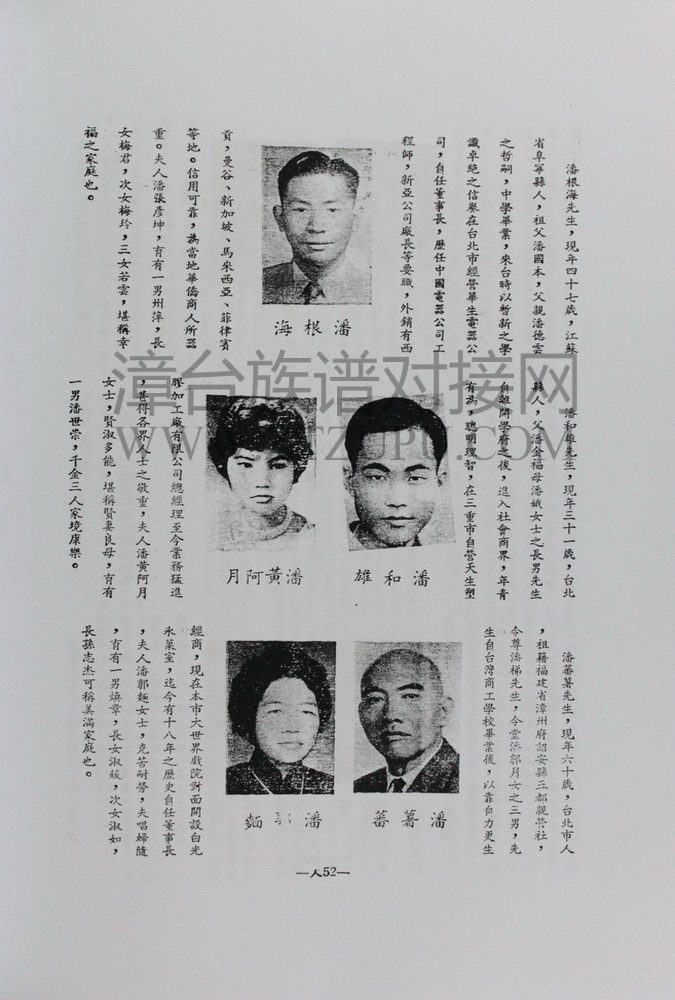 潘根海先生，現年四十七歲，江蘇
省阜寧縣人，祖父潘國本，父親潘德雲
之哲嗣，中學畢業，來台時以嶄新之學
識卓絶之信譽在台北市經營華生電器公
司，自任董事長，歷任中國電器公司工
程師，新亞公司廠長等要職，外銷有西
貢，曼谷、新加坡、馬來西亞、菲律賓
等地。信用可靠，為當地華僑商人所器
重。夫人潘張彥坤，育有一男州萍，長
女梅君，次女梅玲，三女若雲，堪稱幸
福之家庭也。
海根潘
潘和雄先生，現年三十一歲，台北
縣人，父潘金福母潘娥女士之長男先生
自離開學府之後，進入社會商界，年青
有為，聰明理智，在三重市自營天生塑
膠加工廠有限公司總經理至今業務猛進
，甚得各界人士之敬重，夫人潘黃阿月
女士，賢淑多能，堪稱賢妻良母，育有
一男潘世崇，千金三人家境康樂。
雄和潘
月阿黃潘
潘蕃薯先生，現年六十歲，台北市人
，祖籍福建省漳州府詔安縣三都親營社，
令尊潘梯先生，令堂潘郭月女之三男，先
生自台灣商工學校畢業後，以靠自力更生
經商，現在本市大世界戲院對面開設白光
氷菓室，迄今有十八年之歷史自任董事長
，夫人潘郭麵女士，克苦耐勞，夫唱婦隨
，育有一男煥章，長女淑媛，次女淑如，
長孫志杰可稱美滿家庭也。
蕃薯潘
麵 潘
—人52—
漳台族谱对接网
WWW.ZTZUPU.COM